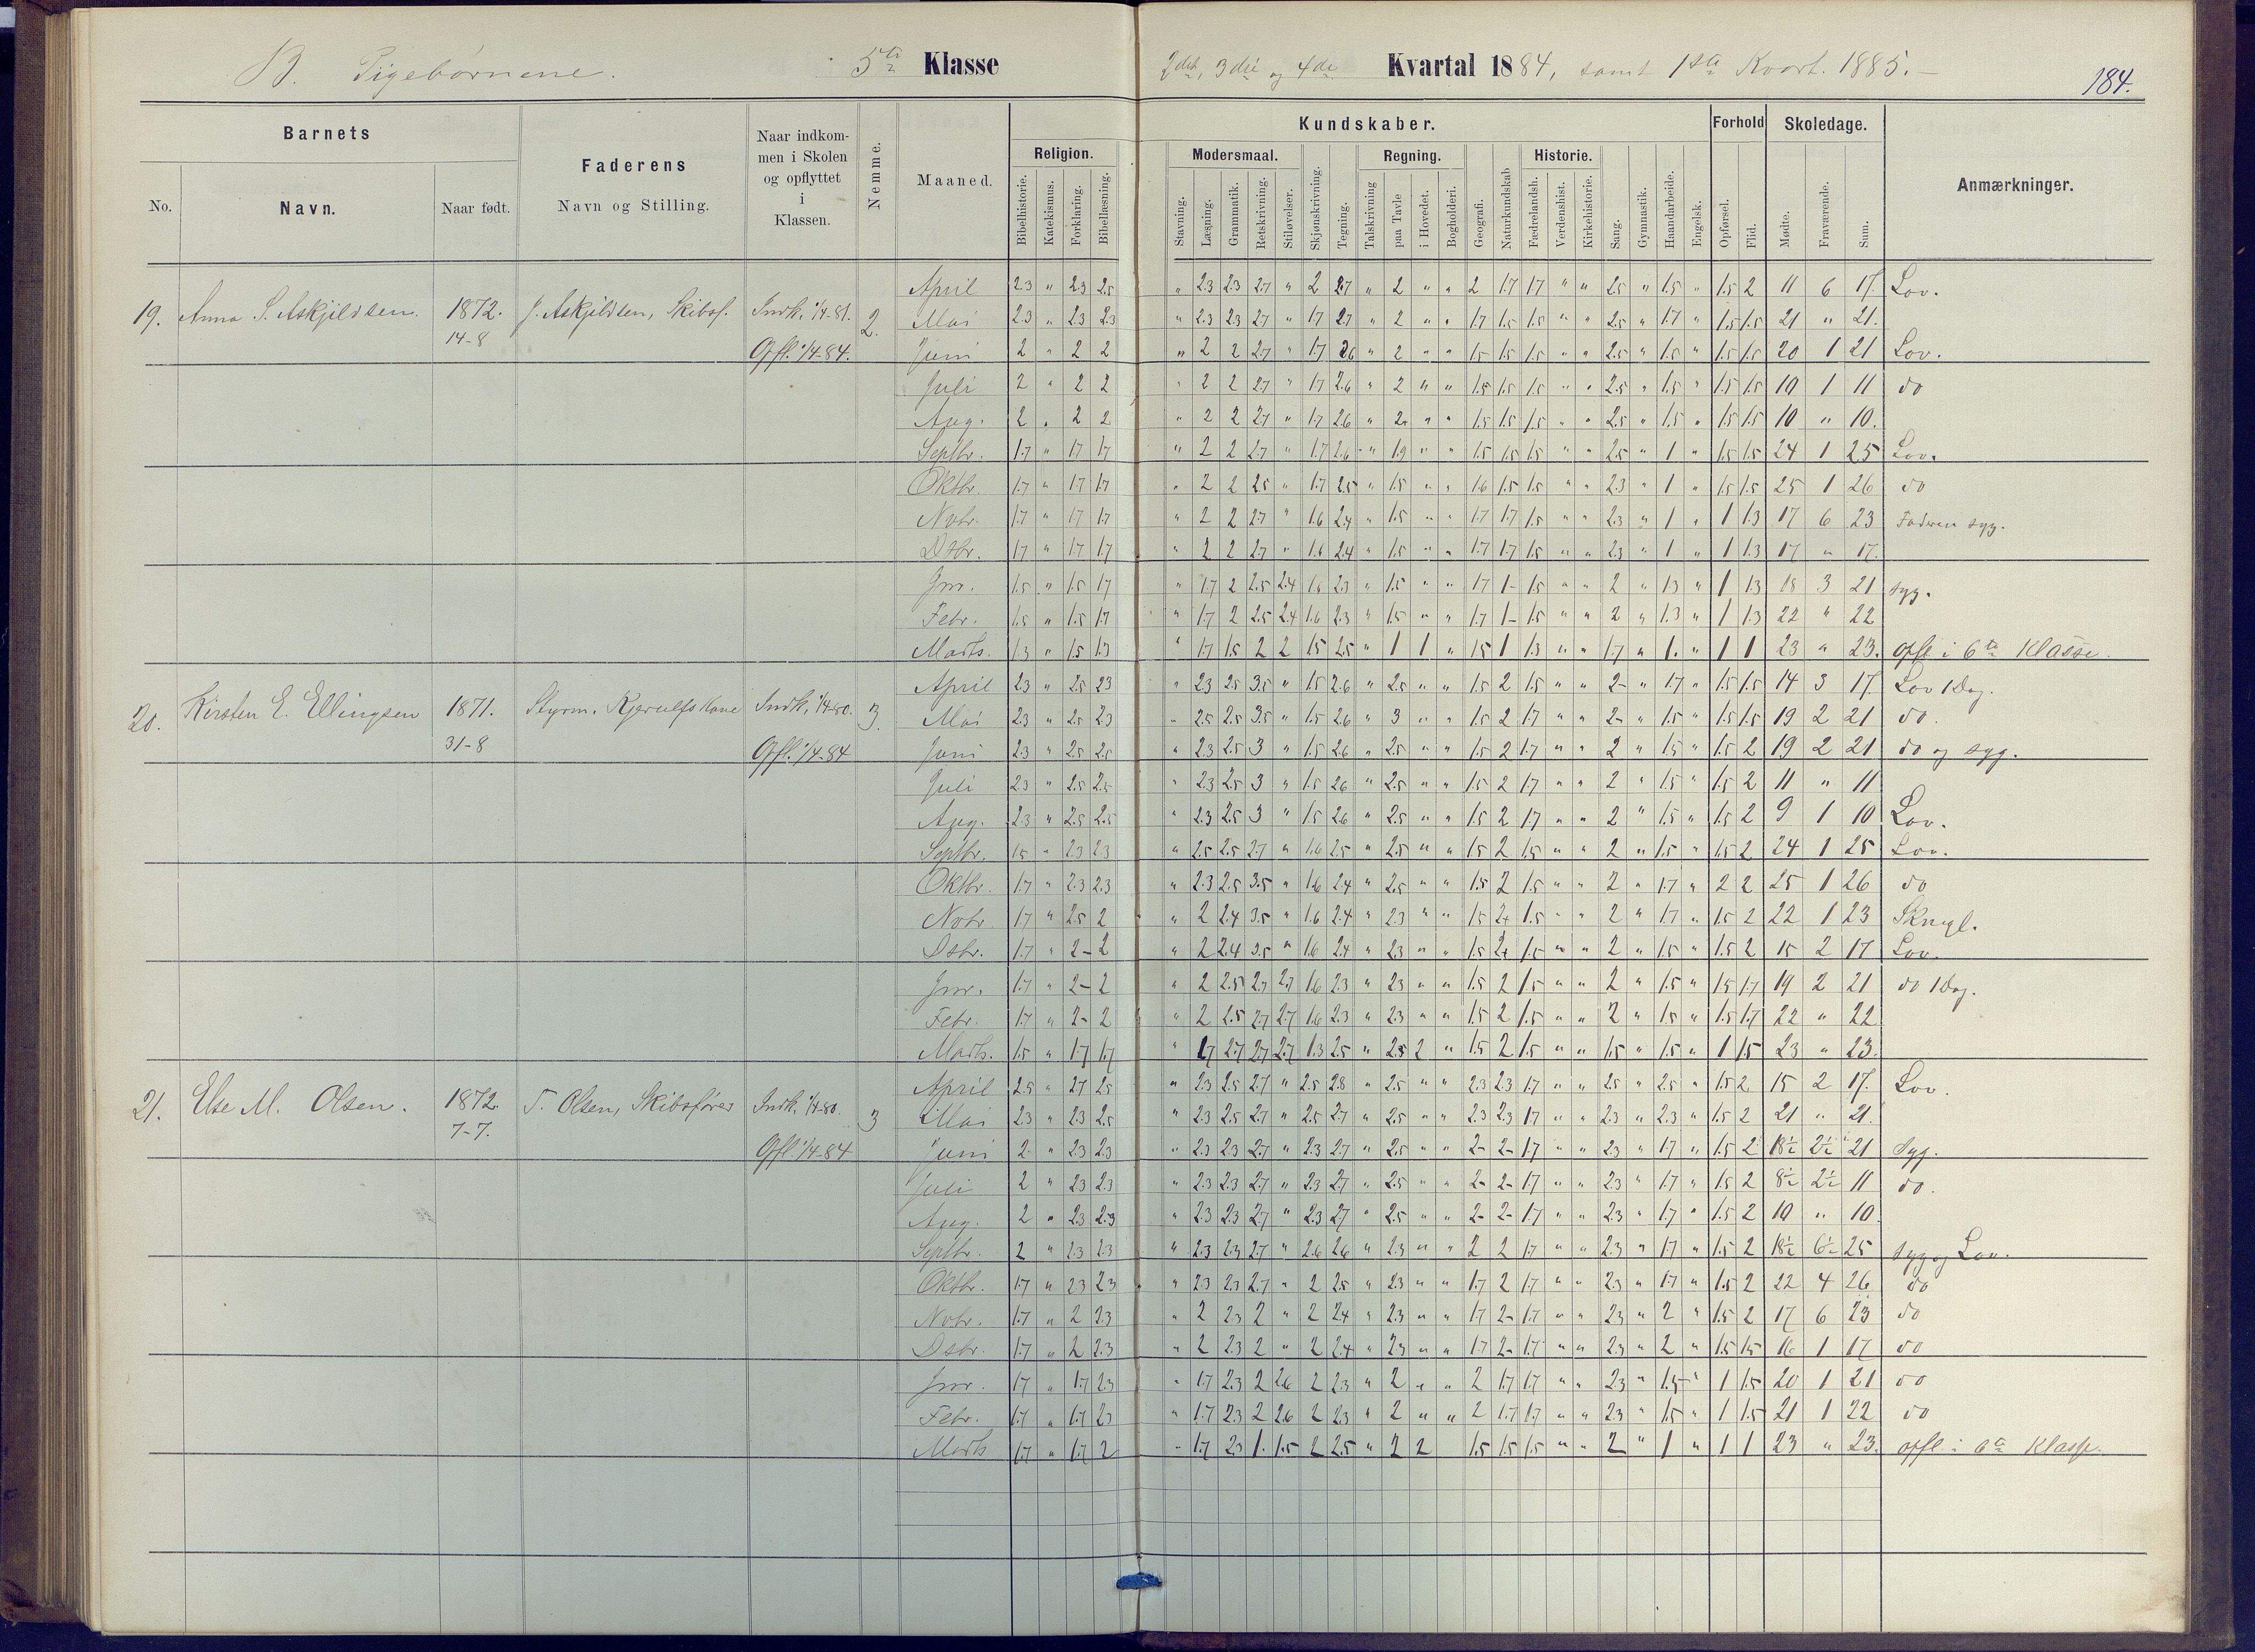 B. Pigebørnene. 5te Klasse 2det, 3die og 4de Kvartal 1884, samt 1ste Kvart. 1885.
184.
Barnets
No. Navn. Naar født.
Faderens
Navn og Stilling.
Naar indkom-
men i Skolen
og opflyttet
i
Klassen.
Nemme.
Maaned.
Kundskaber.
Religion.
Bibelhistorie. Katekismus. Forklaring. Bibellæsning.
Modersmaal.
Stavning. Læsning. Grammatik. Retskrivning. Stiløvelser.
Skjønskrivning. Tegning.
Regning.
Talskrivning paa Tavle i Hovedet. Bogholderi.
Geografi. Naturkundskab
Historie.
Fædrelandsh. Verdenshist. Kirkehistorie.
Sang. Gymnastik. Haandarbeide. Engelsk.
Forhold
Opførsel. Flid.
Skoledage.
Mødte. Fraværende. Sum.
Anmærkninger.
19. Anna S. Askjildsen. 1872. 14-8 J. Askjildsen, Skibsf. Indk. 1/4-81. Opfl. 1/4-84. 2.
April 2.3 " 2.3 2.5 " 2.3 2.3 2.7 " 2 2.7 " 2 " " 2 1.7 1.7 " " 2.5 " 1.5 " 1.5 2 11 6 17. Lov.
Mai 2.3 " 2.3 2.3 " 2.3 2.3 2.7 " 1.7 2.7 " 2 " " 1.7 1.5 1.5 " " 2.5 " 1.7 " 1.5 1.5 21 " 21.
Juni 2 " 2 2 " 2 2 2.7 " 1.7 2.6 " 2 " " 1.5 1.5 1.5 " " 2.5 " 1.5 " 1.5 1.5 20 1 21 Lov.
Juli 2 " 2 2 " 2 2 2.7 " 1.7 2.6 " 2 " " 1.5 1.5 1.5 " " 2.5 " 1.5 " 1.5 1.5 10 1 11 do
Aug. 2 " 2 2 " 2 2 2.7 " 1.7 2.6 " 2 " " 1.5 1.5 1.5 " " 2.5 " 1.5 " 1.5 1.5 10 " 10.
Septbr. 1.7 " 1.7 1.7 " 2 2 2.7 " 1.7 2.6 " 1.9 " " 1.5 1.5 1.5 " " 2.5 " 1 " 1.5 1.5 24 1 25 Lov.
Oktbr. 1.7 " 1.7 1.7 " 2 2 2.5 " 1.7 2.5 " 1.5 " " 1.6 1.5 1.5 " " 2.3 " 1 " 1.5 1.5 25 1 26 do
Novbr. 1.7 " 1.7 1.7 " 2 2 2.7 " 1.6 2.4 " 1.5 " " 1.7 1.7 1.5 " " 2.3 " 1 " 1 1.3 17 6 23 Faderen syg.
Dsbr. 1.7 " 1.7 1.7 " 2 2 2.7 " 1.6 2.4 " 1.5 " " 1.7 1.7 1.5 " " 2.3 " 1 " 1 1.3 17 " 17.
Jnr. 1.5 " 1.5 1.7 " 1.7 2 2.5 2.4 1.6 2.3 " 1.5 " " 1.7 1- 1.5 " " 2 " 1.3 " 1 1.3 18 3 21 syg.
Febr. 1.5 " 1.5 1.7 " 1.7 2 2.5 2.4 1.6 2.3 " 1.5 " " 1.7 1- 1.5 " " 2 " 1.3 " 1 1.3 22 " 22
Marts. 1.3 " 1.5 1.3 " 1.7 1.5 2 2 1.5 2.5 " 1 1 " 1.5 1 1.3 " " 1.7 " 1. " 1 1 23 " 23. opfl i 6te Klasse.
20. Kirsten E. Ellingsen 1871. 31-8 Styrm. Kjerulfs Kone Indk. 1/4-80. Opfl. 1/4-84 3.
April 2.3 " 2.5 2.3 " 2.3 2.5 3.5 " 1.5 2.6 " 2.5 " " 1.5 2 1.5 " " 2- " 1.7 " 1.5 1.5 14 3 17. Lov 1 Dag.
Mai 2.3 " 2.5 2.3 " 2.5 2.5 3.5 " 1.5 2.6 " 3 " " 1.5 2 1.7 " " 2- " 1.5 " 1.5 1.5 19 2 21 do.
Juni 2.3 " 2.5 2.5 " 2.3 2.5 3 " 1.5 2.6 " 2.5 " " 1.5 2 1.7 " " 2 " 1.5 " 1.5 2 19 2 21 do og syg.
Juli 2.3 " 2.5 2.5 " 2.3 2.5 3 " 1.5 2.6 " 2.5 " " 1.5 2 1.7 " " 2 " 1.5 " 1.5 2 11 " 11
Aug. 2.3 " 2.5 2.5 " 2.3 2.5 3 " 1.5 2.6 " 2.5 " " 1.5 2 1.7 " " 2 " 1.5 " 1.5 2 9 1 10 Lov.
Septbr. 1.5 " 2.3 2.3 " 2.5 2.5 2.7 " 1.6 2.5 " 2.5 " " 1.5 2 1.5 " " 2 " 1.5 " 1.5 2 24 1 25 Lov.
Oktbr. 1.7 " 2.3 2.3 " 2.3 2.5 3.5 " 1.6 2.4 " 2.5 " " 1.5 2 1.5 " " 2 " 1.7 " 2 2 25 1 26 do
Novbr 1.7 " 2.5 2 " 2 2.4 3.5 " 1.6 2.4 " 2.3 " " 1.5 2+ 1.5 " " 2 " 1.7 " 1.5 2 22 1 23
Dsbr. 1.7 " 2- 2 " 2 2.4 3.5 " 1.6 2.4 " 2.3 " " 1.5 2+ 1.5 " " 2 " 1.5 " 1.5 2 15 2 17 Lov.
Jnr. 1.7 " 2- 2 " 2 2.5 2.7 2.7 1.6 2.3 " 2.3 " " 1.5 2 1.5 " " 2 " 1.5 " 1.5 1.7 19 2 21 do 1 Dag.
Febr. 1.7 " 2- 2 " 2 2.5 2.7 2.7 1.6 2.3 " 2.3 " " 1.5 2 1.5 " " 2 " 1.5 " 1.5 1.7 22 " 22
Marts. 1.5 " 1.7 1.7 " 1.7 2.7 2.7 2.7 1.3 2.5 " 2.5 2 " 1.5 2 1.5 " " 1.5 " 1.5 " 1 1.5 23 " 23.
21. Else M. Olsen. 1872. 7-7. T. Olsen, Skibsfører Indk. 1/4-80. Opfl. 1/4-84 3
April 2.5 " 2.7 2.5 " 2.3 2.5 2.7 " 2.5 2.8 " 2.5 " " 2.3 2.3 1.7 " " 2.5 " 2.5 " 1.5 2 15 2 17. Lov.
Mai 2.3 " 2.3 2.5 " 2.3 2.5 2.7 " 2.5 2.7 " 2.5 " " 2.3 2.3 1.7 " " 2.3 " 2.3 " 1.5 2 21 " 21.
Juni 2 " 2.3 2.3 " 2.3 2.3 2.7 " 2.3 2.7 " 2.5 " " 2- 2- 1.7 " " 2.3 " 1.7 " 1.5 2 18½ 2½ 21 Syg.
Juli 2 " 2.3 2.3 " 2.3 2.3 2.7 " 2.3 2.7 " 2.5 " " 2- 2- 1.7 " " 2.3 " 1.7 " 1.5 2 8½ 2½ 11 do.
Aug. 2 " 2.3 2.3 " 2.3 2.3 2.7 " 2.3 2.7 " 2.5 " " 2- 2- 1.7 " " 2.3 " 1.7 " 1.5 2 10 " 10.
Septbr. 2 " 2.3 2.3 " 2.3 2.3 2.7 " 2.6 2.6 " 2.3 " " 2 2 1.7 " " 2.3 " 1.7 " 1.5 2 18½ 6½ 25 syg og Lov.
Oktbr. 1.7 " 2.3 2.3 " 2.3 2.3 2.7 " 2 2.5 " 2.3 " " 1.7 2 1.7 " " 2.3 " 1.7 " 1.5 2 22 4 26 do
Novbr. 1.7 " 2 2.3 " 2 2.3 2 " 2 2.4 " 2.3 " " 1.7 2- 1.7 " " 2.3 " 2 " 1.5 2 17 6 23 do
Dsbr. 1.7 " 2 2.3 " 2 2.3 2 " 2 2.4 " 2.3 " " 1.7 2- 1.7 " " 2.3 " 2 " 1.5 1.5 16 1 17 do
Jnr. 1.7 " 1.7 2.3 " 1.7 2.3 2 2.6 2 2.3 " 2 " " 2 1.7 1.7 " " 2.3 " 1.5 " 1 1.5 20 1 21 do
Febr. 1.7 " 1.7 2.3 " 1.7 2.3 2 2.6 2 2.3 " 2 " " 2 1.7 1.7 " " 2.3 " 1.5 " 1 1.5 21 1 22 do
Marts 1.7 " 1.7 2 " 1.7 2.3 1. 1.5 2 2.5 " 2 2 1.5 1.5 1.5 " " 2 " 1 " 1 1 23 " 23. opfl i 6te Klasse.